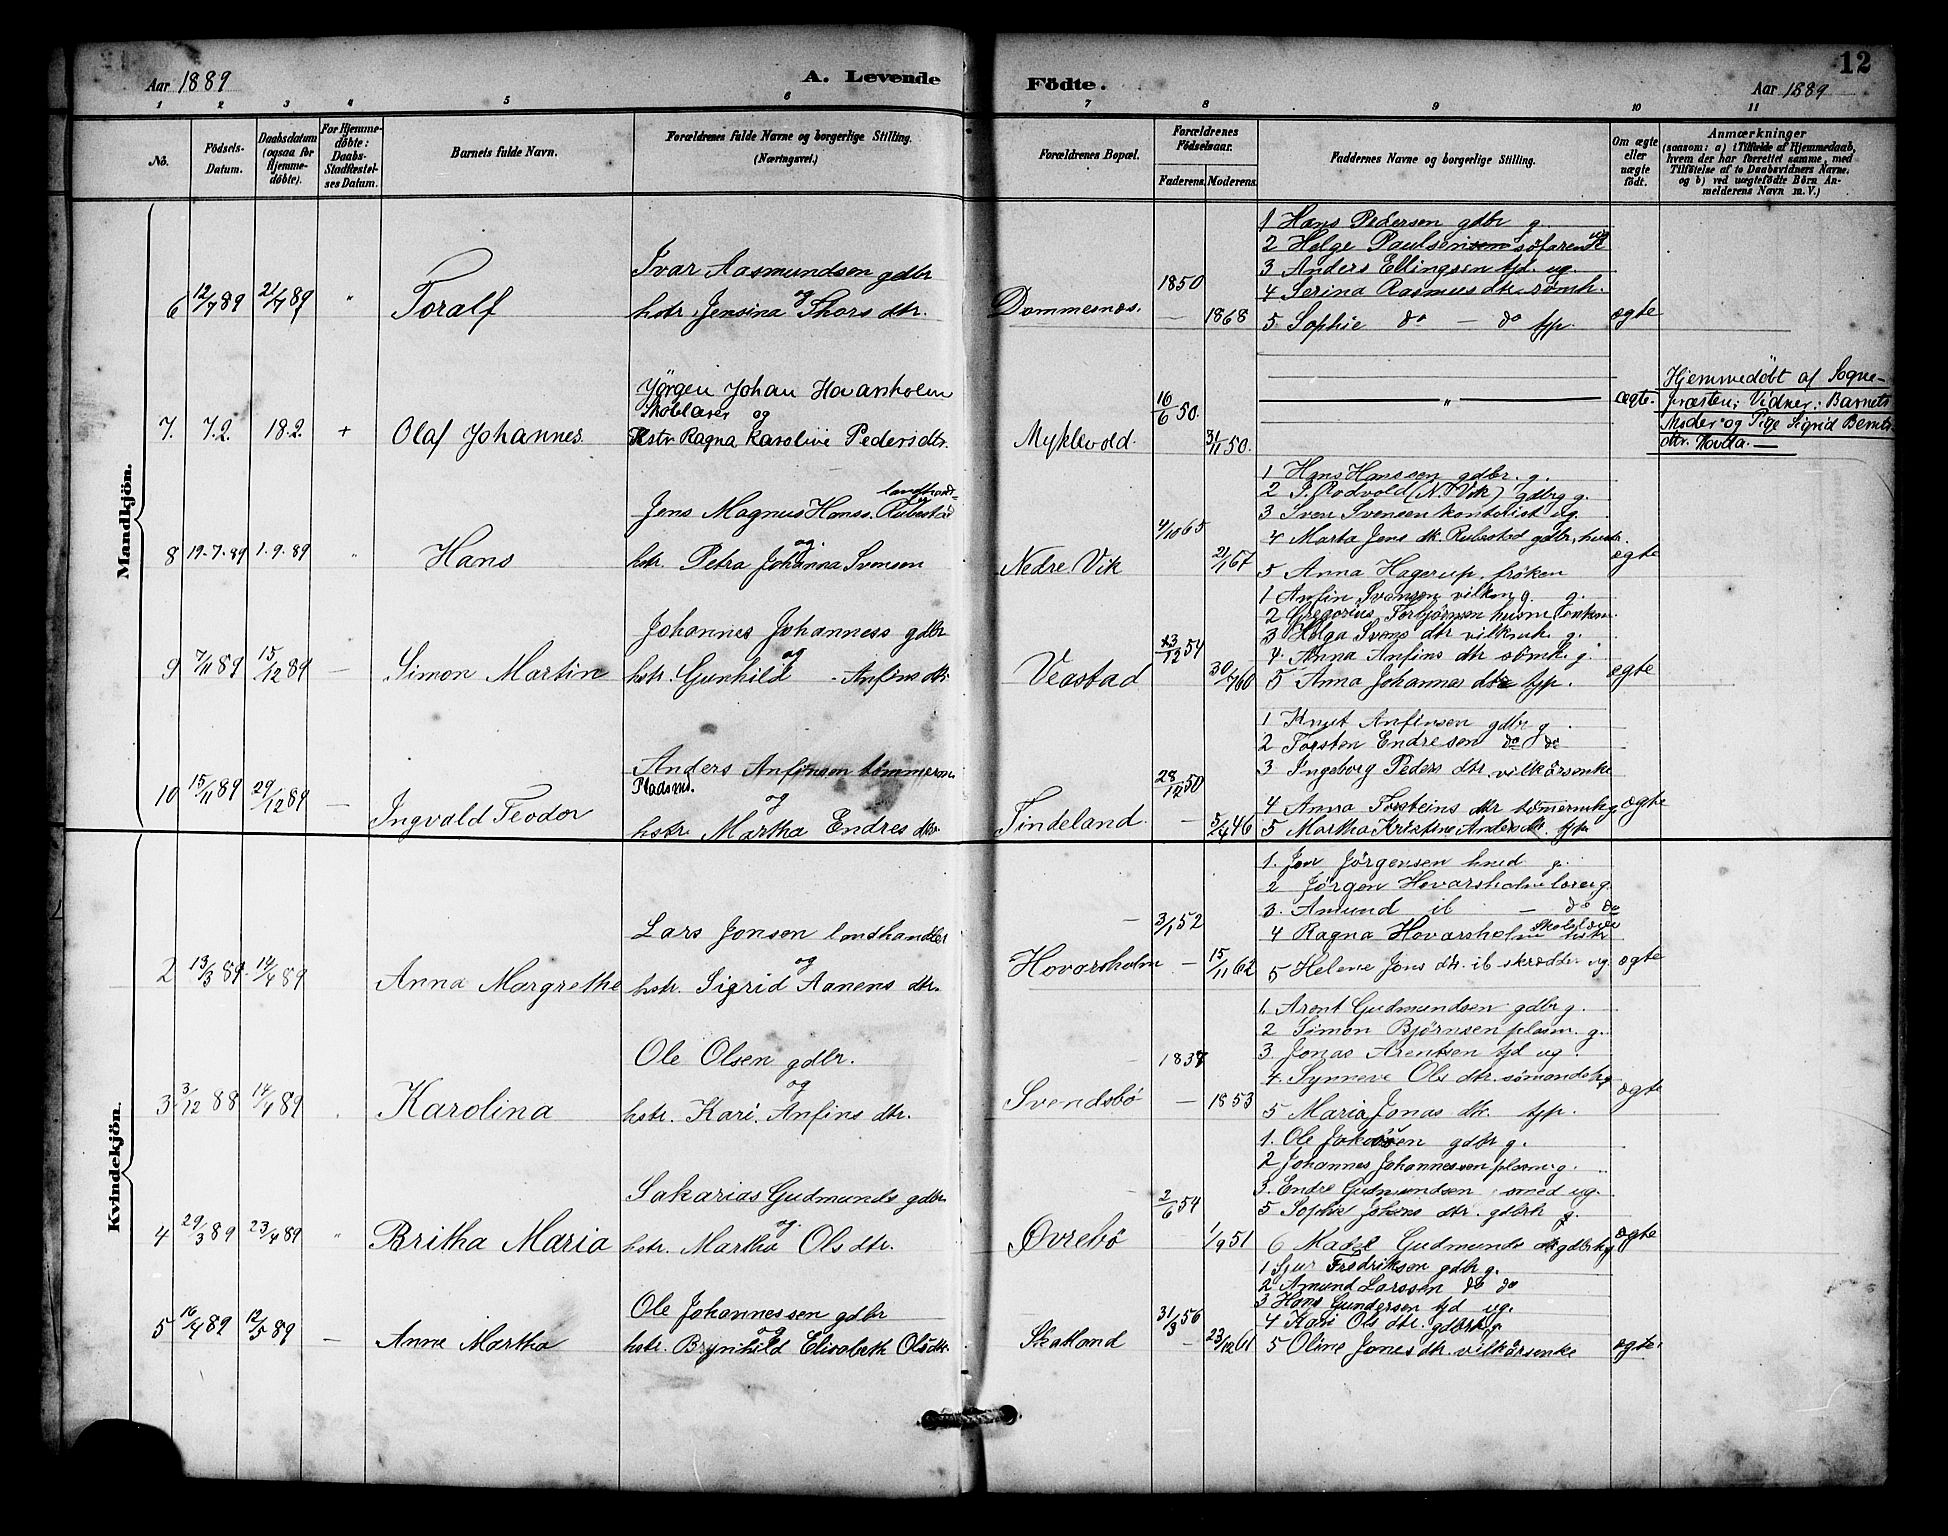 Aar 1889
A. Levende
Födte.
12
Aar 1889
1 2 3 4 5 6 7 8 9 10 11
No.
Födsels-
Datum.
Daabsdatum
(ogsaa for
Hjemme-
döbte).
For Hjemme-
döbte:
Daabs-
Stadfæstel-
ses Datum.
Barnets fulde Navn.
Forældrenes fulde Navne og borgerlige Stilling.
(Næringsvei.)
Forældrenes Bopæl.
Forældrenes
Födselsaar.
Faderens. Moderens.
Faddernes Navne og borgerlige Stilling.
Om ægte
eller
uægte
födt.
Anmærkninger
(saasom: a) i Tilfælde af Hjemmedaab,
hvem der har forrettet samme, med
Tilföielse af to Daabsvidners Navne,
og b) ved uægtefödte Börn An-
melderens Navn m. V.)
Mandkjön.
6 12/7 89 21/7 89 " Toralf
Ivar Aasmundsen gdbr
og
hstr. Jensina Thors dtr.
Dommesnæs.
1850
— 1868
1 Hans Pedersen gdbr g.
2 Helge Paulsen söfarende ug
3 Anders Ellingsen tjd. ug.
4 Serina Rasmus dtr. sömh.
5 Sophie do — do tjp.
ægte
7. 7.2. 18.2. + Olaf Johannes
Jörgen Johan Hovarsholm
Skolelærer og
Hstr Ragna Karoline Pedersdtr.
Myklevold.
16/6 50.
31/11 50.
"
ægte.
Hjemmedöbt af Sogne-
præsten; Vidner: Barnets
Moder og Pige Sigrid Bernts-
dtr. Hovda. —
8 19-7-89 1-9-89 " Hans
landhand-
Jens Magnus Hanss. Rubestad
og.
hstr. Petra Johanna Svensen
Nedre Vik
4/10 65
21/1 67
1 Hans Hanssen gdbr. g.
2 P. Rodvold (N. Vik) gdbrg g.
3 Sven Svensen kontorist ug
4 Marta Jens dtr. Rubestad gdbr, hustr.
5 Anna Hagerup, fröken
ægte
9 7/11 89 15/12 89 — Simon Martin
Johannes Johanness gdbr
og
hstr. Gunhild Anfins dtr.
Veastad
13/12 54
30/7 60
1 Anfin Svensen vilkm g. g.
2 Gregorius Torbjörnsen
3 Helga Svens dtr vilkmk. g.
4. Anna Anfins dtr sömh. g.
5 Anna Johannes dtr tjp.
ægte
10 15/11 89 29/12 89 — Ingvald Teodor
Anders Anfinsen tömmerm.
Pladsmd.
og
hstr. Martha Endres dtr.
Tindeland.
28/12 50
— 5/4 46
1 Knut Anfinsen gdbr g.
2 Torsten Endresen do do
3 Ingeborg Peders dtr. vilkårsenke
4 Anna Torsteins dtr tömermk g
5 Martha Kristine Anders dtr. tjp.
ægte
Kvindekjön.
2 13/3 89. 14/4 89 Anna Margrethe
Lars Jonsen landhandler
og
hstr. Sigrid Aanens dtr.
Hovarsholm
— 3/1 52
— 15/11 62
1. Jon Jörgensen hmd g.
2 Jörgen Hovarsholm lærer g.
3. Amund ib — do do
4 Ragna Hovarsholm Skolelærer hstr
5 Helene Jons dtr. ib skrædder ug
ægte
3 3/12 88 14/4 89 . Karolina
Ole Olsen gdbr.
og
hstr. Kari. Anfins dtr.
Svendsbö
1837
— 1853
1. Arent Gudmundsen gdbr g.
2 Simon Bjørnsen plasm. g.
3. Jonas Arentsen tjd ug.
4. Synneve Ols dtr. sömandsk g
5 Maria Jonas dtr. tjp.
ægte
4 29/3 89 23/4 89 " Britha Maria
Sakarias Gudmunds gdbr
og.
hstr. Martha Ols dtr.
Øvrebö
2/6 54
1/9 51
1. Ole gdbr g.
2 Johannes Johannessen plasm g.
3. Endre Gudmundsen smed ug.
5 Sophie Johans dtr. gdbrk g.
6 Madel Gudmunds dtr gdbrk g
ægte
5 16/4 89 12/5 89 — Anne Martha
Ole Johannessen gdbr
og
hstr. Brynhild Elisabeth Olsdtr.
Skatland
31/3 56
— 23/12 61
1 Sjur Fredriksen gdbr g.
2 Amund Larssen do do
3 Hans Gundersen tjd ug.
4 Kari Ols dtr. gdbrk g.
5 Oline Jones dtr. vilkårsenke
ægte.